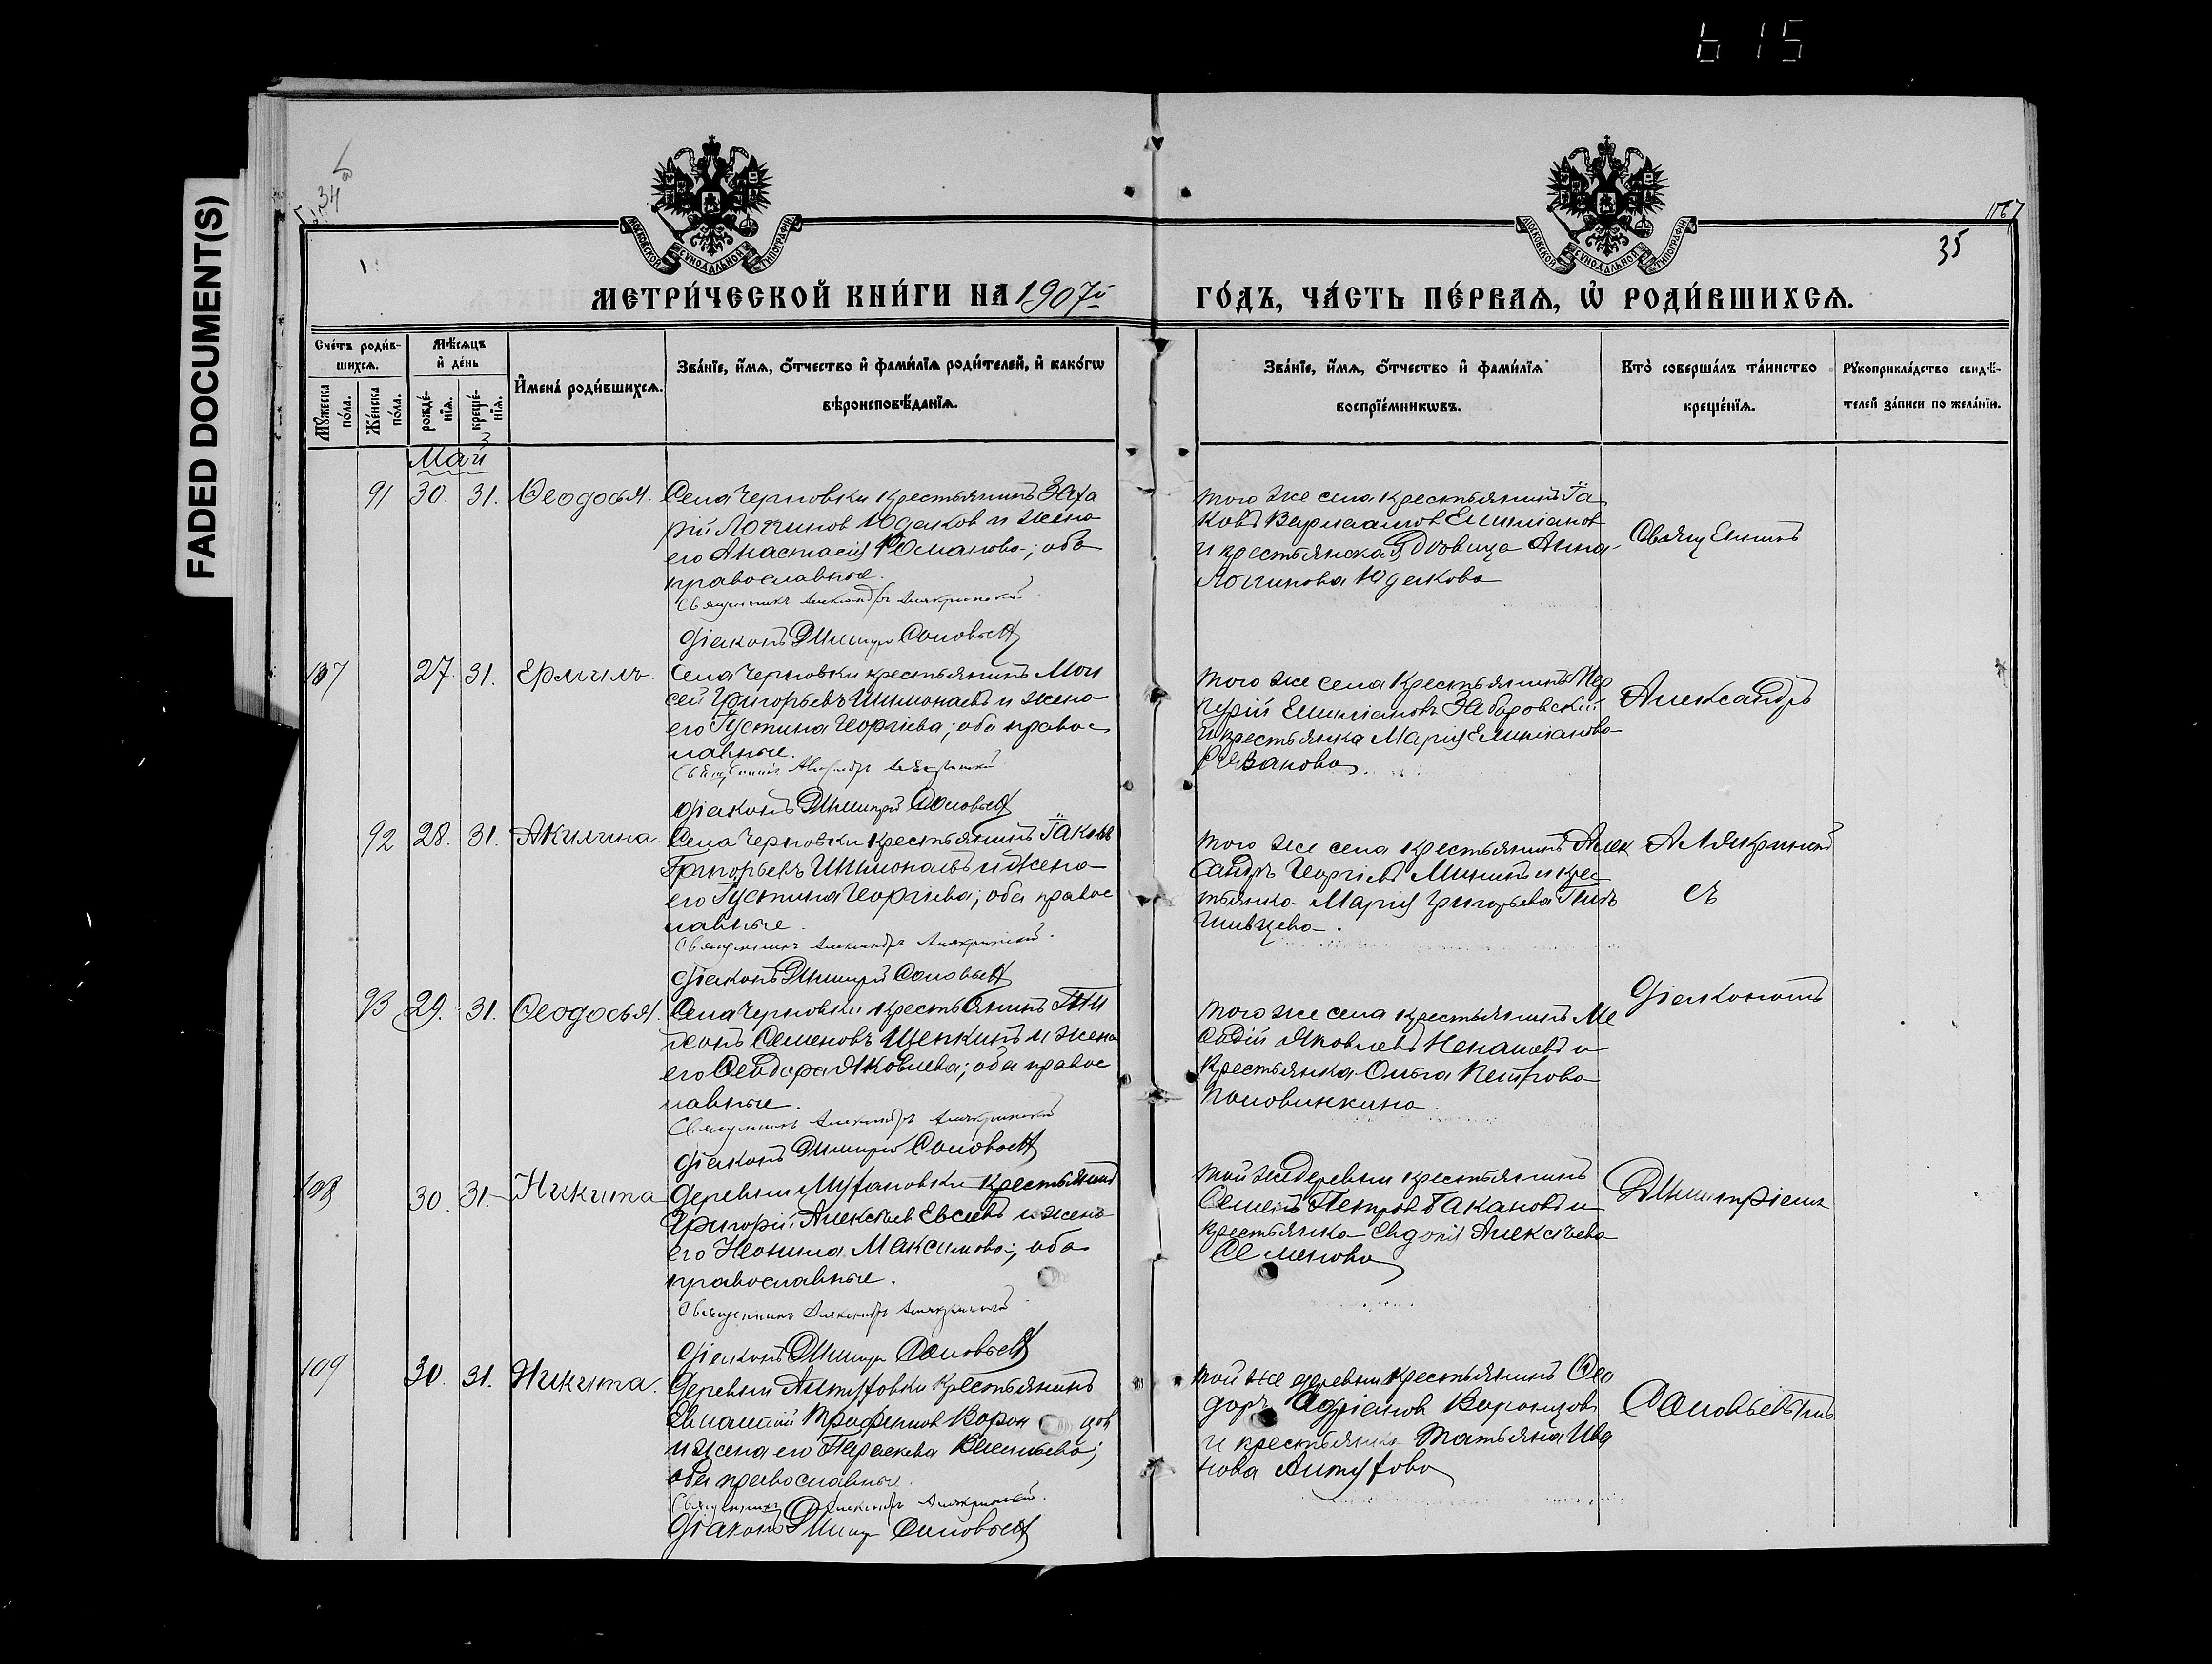 FADED DOCUMENT(S)
615
34
1167
35
МОСКОВСКОЙ СѴНОДАЛЬНОЙ ТИПОГРАФІИ
МОСКОВСКОЙ СѴНОДАЛЬНОЙ ТИПОГРАФІИ
МЕТРИ́ЧЕСКОЙ КНИ́ГИ НА 1907й
ГО́ДЪ, ЧА́СТЬ ПЕ́РВАѦ, Ѡ҆ РОДИ́ВШИХСѦ.
Сче́тъ роди́в-
шихсѧ.
Мꙋ́жеска по́ла.
Же́нска по́ла.
Мѣ́сѧцъ
и҆ де́нь
рожде́-нїѧ.
креще́-нїѧ.
И҆мена̀ роди́вшихсѧ.
Зва́нїе, и҆́мѧ, ѻ҆́тчество и҆ фами́лїѧ роди́телей, и҆ како́гѡ
вѣроисповѣ́данїѧ.
Зва́нїе, и҆́мѧ, ѻ҆́тчество и҆ фами́лїѧ
воспрїе́мникѡвъ.
Кто̀ соверша́лъ та́инство
креще́нїѧ.
Рꙋкоприкла́дство свидѣ́-
телей за́писи по жела́нїю.
Май
91 30. 31. Ѳеодосья.
Села Черновки крестьянинъ Заха
рий Логинов Юдаков и жена
его Анастасія Романова; оба
православные.
Священникъ Александръ Алякринский
Діаконъ Димитрій Соловьевъ
того же села крестьянинъ Іа
ковъ Варлаамов Емилианов
и крестьянская девица Анна
Логинова Юдакова
Священникъ
107 27. 31. Ермилъ.
Села Черновки крестьянинъ Мои
сей Григорьевъ Шимонаевъ и жена
его Іустина Георгіева; оба право-
славные.
Священникъ Александръ Алякринский
Діаконъ Димитрій Соловьевъ
того же села крестьянинъ Мер
курій Емилиановъ Заборовский
и крестьянка Марія Емилианова
Александръ
92 28. 31. Акилина.
Села Черновки крестьянинъ Іаковъ
Григорьевъ Шимонаевъ и жена
его Іустина Георгіева; оба правос
лавные.
Священникъ Александръ Алякринский
Діаконъ Димитрій Соловьевъ
того же села крестьянинъ Алек
сандръ Георгіевъ Мининъ и крес
тьянка Марія Григорьева
Алякринский
съ
93 29. 31. Ѳеодосья.
Села Черновки крестьянинъ Ти
хонъ Семеновъ Щепкинъ и жена
его Ѳеодора Яковлева; оба правос
лавные.
Священникъ Александръ Алякринский
Діаконъ Димитрій Соловьевъ
того же села крестьянинъ Ме
ѳодій Яковлевъ Ненашевъ и
крестьянка Ольга Петрова
Половинкина.
Діакономъ
108 30. 31. Никита
Деревни Мухановки крестьянинъ
Григорій Алексѣев Евсеевъ и жена
его Неонила Максимова; оба
православные.
Священникъ Александръ Алякринский
Діаконъ Димитрій Соловьевъ
той же деревни крестьянинъ
Семенъ Петров Какановъ и
крестьянка Евдокія Алексѣева
Семенова
Димитріемъ
109 30. 31. Никита.
Деревни Алтуховки крестьянинъ
Евлампий Трофимов Ворон цов
и жена его Параскева Васильева;
оба православные.
Священникъ Александръ Алякринский
Діаконъ Димитрій Соловьевъ
той же деревни крестьянинъ Ѳео
доръ Адріанов Воронцовъ
и крестьянка Татьяна Ива
нова Алтухова
Соловьевымъ